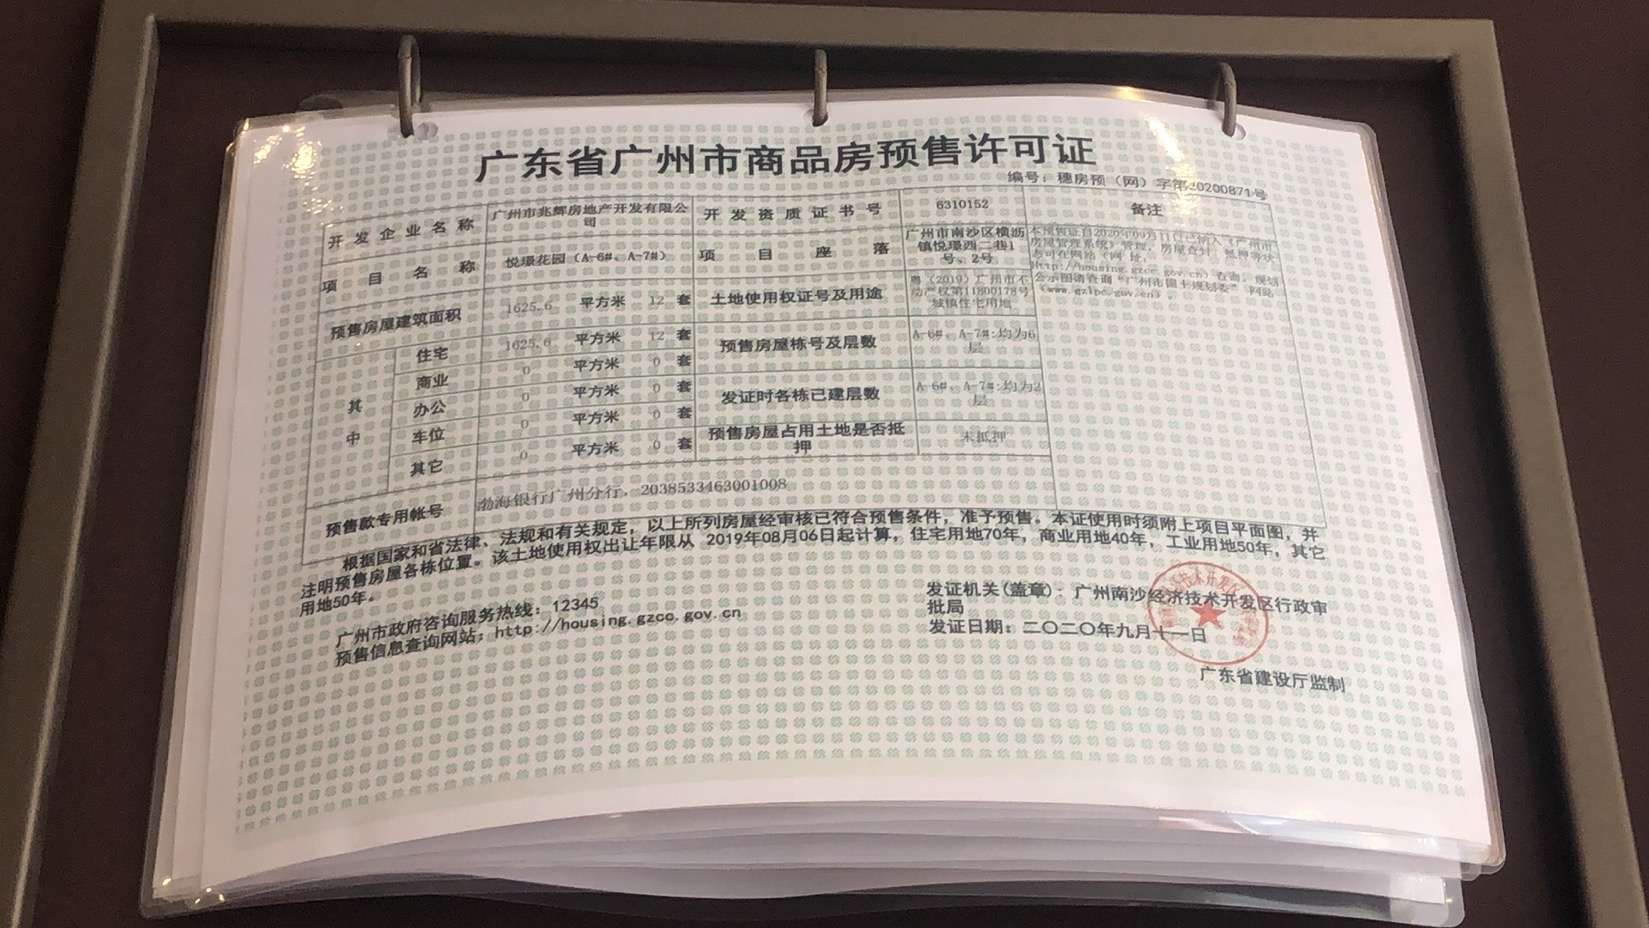 广东省广州市商品房预售许可证
编号：穗房预（网）字第20200871号
开发企业名称 广州市兆辉房地产开发有限公司 开发资质证书号 6310152 备注
项目名称 悦璟花园（A-6#、A-7#） 项目座落 广州市南沙区横沥镇悦璟西二巷1号、2号
本预售证自2020年09月11日已纳入《广州市
房屋管理系统》管理，房屋查封、抵押等状
态可在网站（网 址：
http://housing.gzcc.gov.cn）查询，规划
公示图请查询“广州市国土规划委”网站
（www.gzlpc.gov.cn）。
预售房屋建筑面积 1625.6 平方米 12 套 土地使用权证号及用途 粤（2019）广州市不动产权第11800178号 城镇住宅用地
其中
住宅 1625.6 平方米 12 套 预售房屋栋号及层数 A-6#、A-7#:均为6层
商业 0 平方米 0 套
办公 0 平方米 0 套 发证时各栋已建层数 A-6#、A-7#:均为2层
车位 0 平方米 0 套
其它 0 平方米 0 套 预售房屋占用土地是否抵押 未抵押
预售款专用帐号 渤海银行广州分行，2038533463001008
根据国家和省法律、法规和有关规定，以上所列房屋经审核已符合预售条件，准予预售。本证使用时须附上项目平面图，并
注明预售房屋各栋位置。该土地使用权出让年限从 2019年08月06日起计算，住宅用地70年，商业用地40年，工业用地50年，其它
用地50年。
广州市政府咨询服务热线：12345
预售信息查询网站：http://housing.gzcc.gov.cn
发证机关(盖章)：广州南沙经济技术开发区行政审
批局
发证日期：二〇二〇年九月十一日
广东省建设厅监制